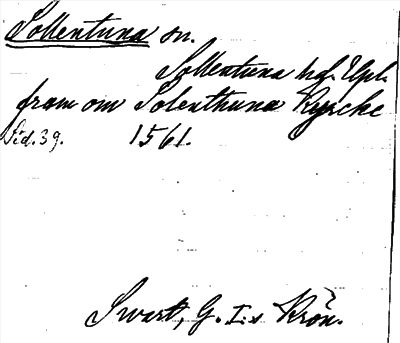 Sollentuna sn.
Sollentuna hd. Upl.
fram om Solenthuna Kyrcke
Sid. 39. 1561.
Swart, G. I:s Krön.